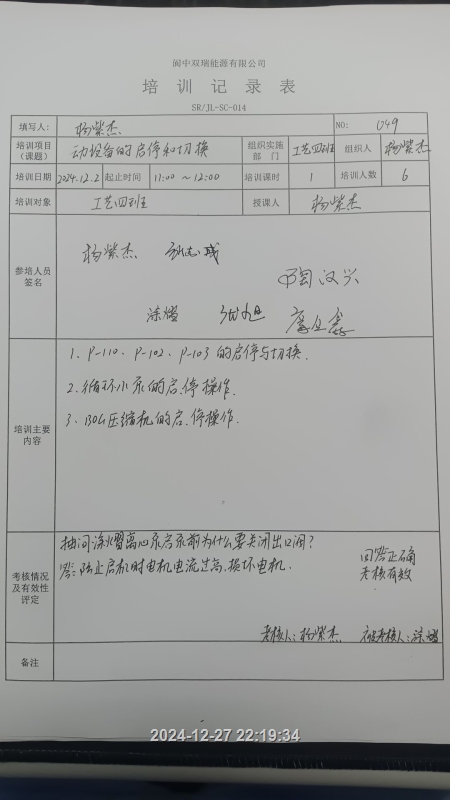 阆中双瑞能源有限公司
培训记录表
SR/JL-SC-014
填写人: 杨紫杰 NO: 049
培训项目(课题) 动设备的启停和切换 组织实施部门 工艺四班 组织人 杨紫杰
培训日期 2024.12.2 起止时间 11:00 ~ 12:00 培训课时 1 培训人数 6
培训对象 工艺四班 授课人 杨紫杰
参培人员签名
杨紫杰
陶汉兴
涂熠 张旭
培训主要内容
1、P-110、P-102、P-103的启停与切换.
2、循环水泵的启、停操作.
3、BOG压缩机的启、停操作.
考核情况及有效性评定
抽问:涂熠离心泵启泵前为什么要关闭出口阀?
答:防止启机时电机电流过高,损坏电机.
回答正确
考核有效
考核人:杨紫杰. 被考核人:涂熠
备注
2024-12-27 22:19:34